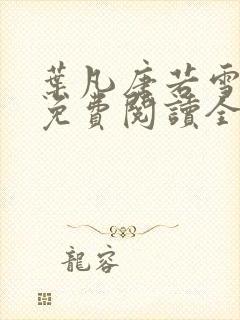 葉凡唐若雪
免費閱讀全
龍容